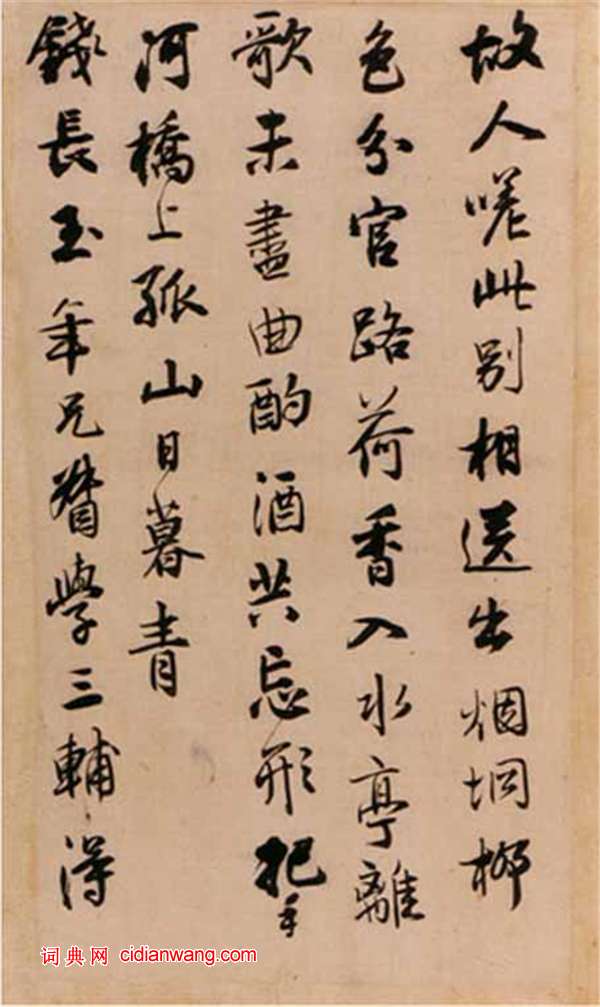 故人嗟此别相送出烟坰柳
色分官路荷香入水亭離
歌未盡曲酌酒共忘形把手
河橋上孤山日暮青
錢長玉年兄督學三輔得
词典网 cidianwang.com